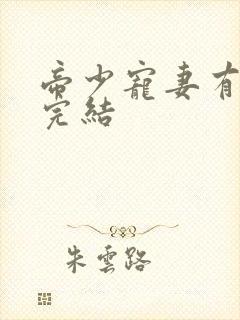 帝少寵妻有
完結
朱雲路